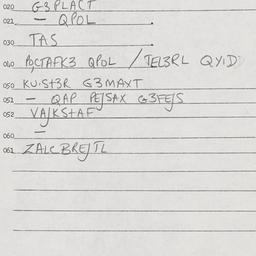 020 G3PLACT
021 — QPOL .
030 TAS .
040 PQCTAFK3 QPOL / TEL3RL QYID
050 KU·ST3R G3MAXT
051 — QAP PE/SAX G3FE/S
052 VA/KSTAF
060 —
061 ZALCBRE/TL